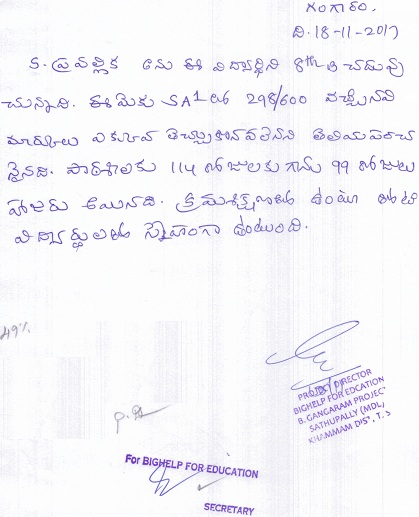 గంగారం.
ది. 18-11-2017
క. ప్రవల్లిక అను ఈ విద్యార్థిని 8th తి చదువు
చున్నది. ఈ మెకు SA1 లో 298/600 వచ్చినవి
మార్కులు ఎక్కువ తెచ్చుకోవలెనని తెలియపరచ
నైనది. పాఠశాలకు 114 రోజులకు గాను 99 రోజులు
హాజరు అయినది. క్రమశిక్షణతో ఉంటూ తోటి
విద్యార్థులతో స్నేహంగా ఉంటుంది.
49%
PROJECT DIRECTOR
BIGHELP FOR EDCATION
B. GANGARAM PROJEC
SATHUPALLY (MDL)
KHAMMAM DIST, T.S
For BIGHELP FOR EDUCATION
SECRETARY